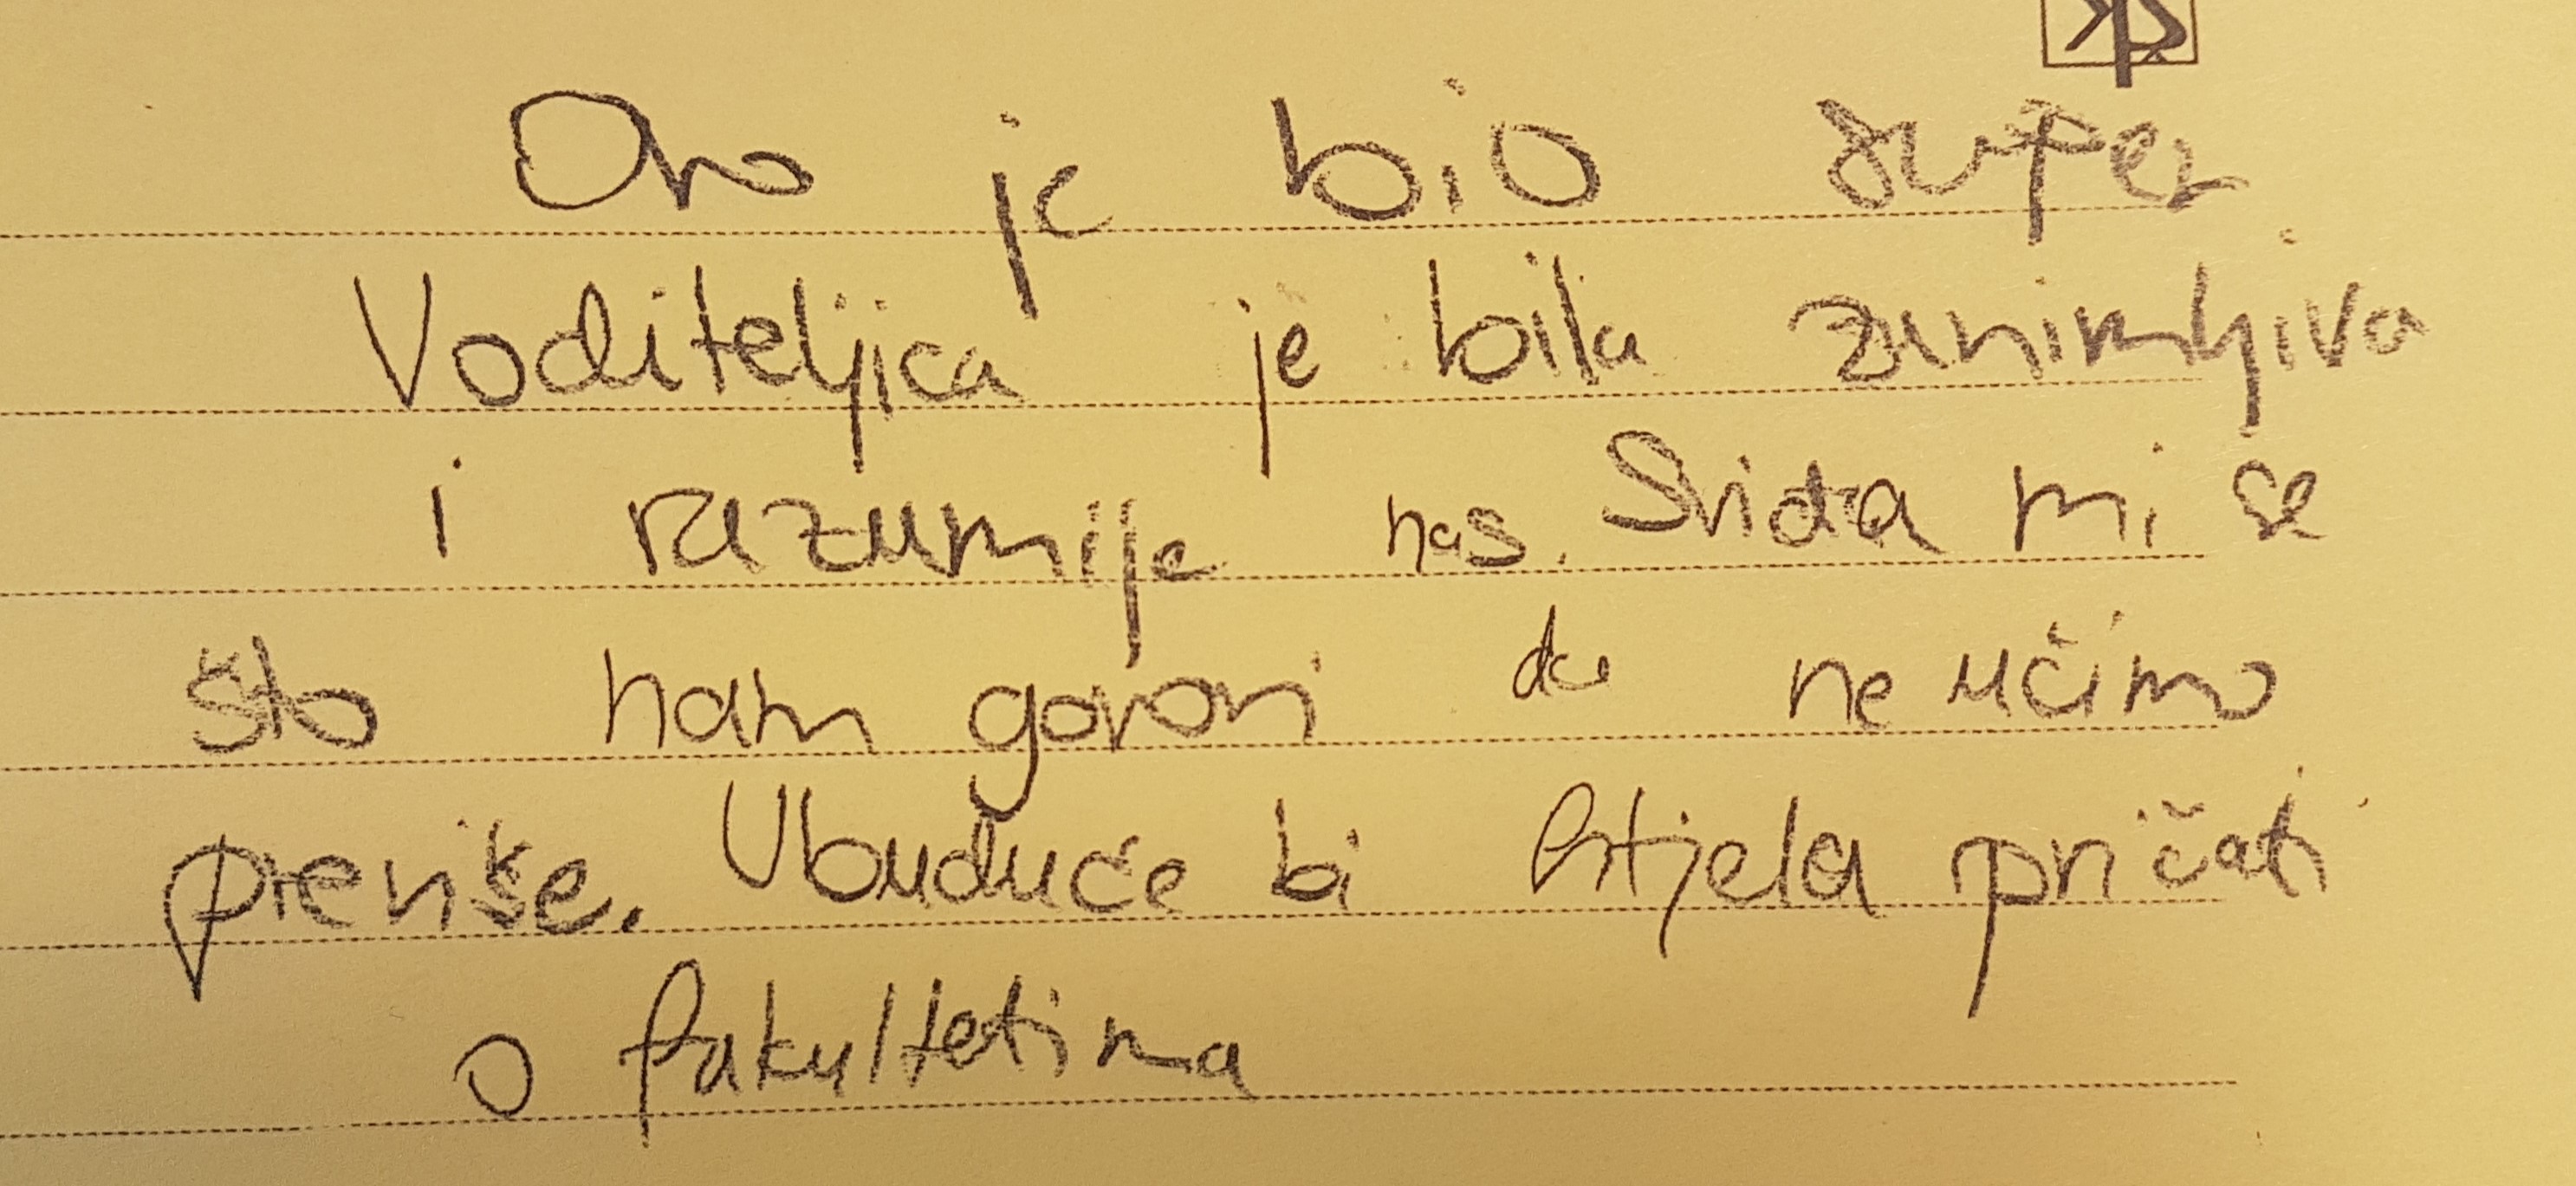 Ovo je bio super
Voditeljica je bila zanimljiva
i razumije nas. Sviđa mi se
što nam govori da ne učimo
previše. Ubuduće bi htjela pričati
o fakultetima